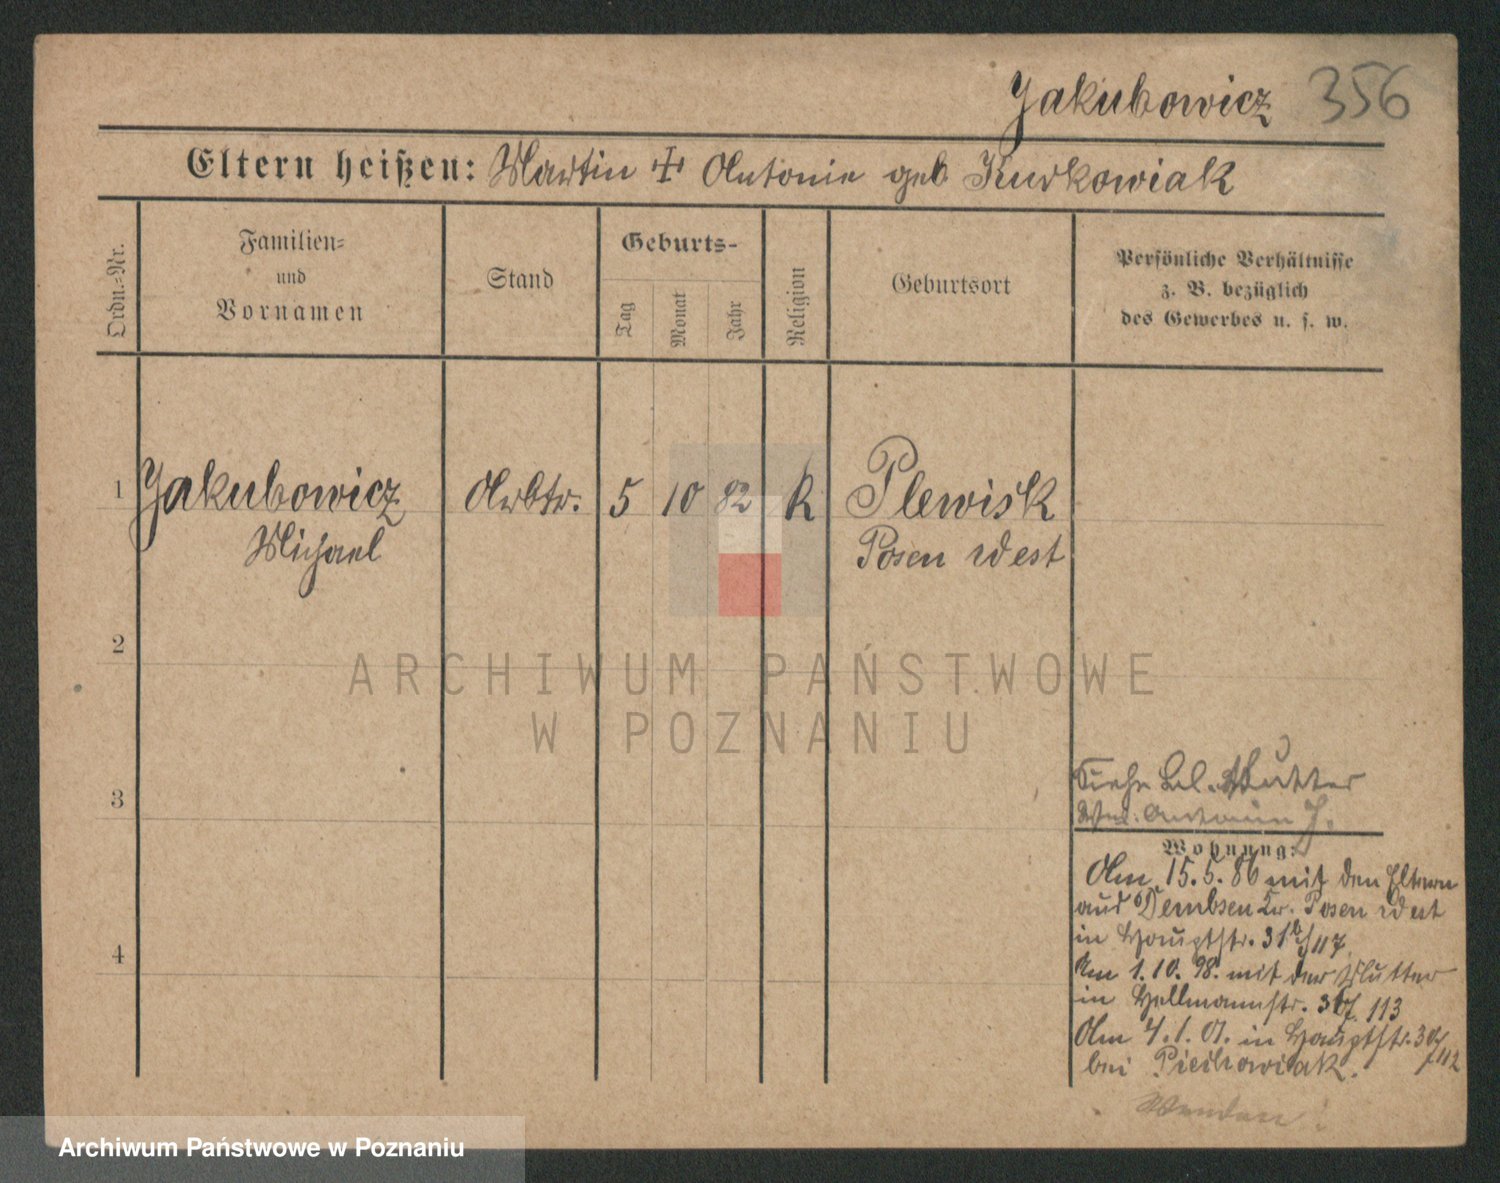 Jakubowicz 356
Eltern heißen: Martin ☩ Antonie geb Kurkowiak
Ordn.=Nr.
Familien=
und
Vornamen
Stand
Geburts-
Tag
Monat
Jahr
Religion
Geburtsort
Persönliche Verhältnisse
z. B. bezüglich
des Gewerbes u. s. w.
1 Jakubowicz Arbtr. 5 10 82 k Plewisk
Michael Posen West
2
ARCHIWUM PAŃSTWOWE
W POZNANIU
Siehe Bel. Mutter
3
Ww. Antonie J.
Wohnung:
Am 15.5.86 mit den Eltern
aus Dembsen Kr. Posen West
in Hauptstr. 31 b/117
4
Am 1.10.98. mit der Mutter
in Hellmannstr. 113
Am 4.1.01. in Hauptstr. 30/112
bei Piechowiak.
Wenden!
Archiwum Państwowe w Poznaniu